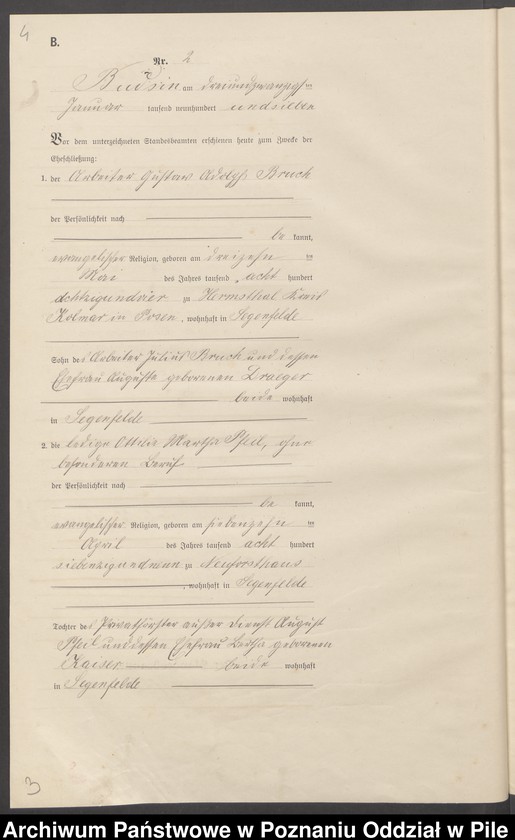 4
B.
Nr. 2
Budsin am dreiundzwanzigsten
Januar tausend neunhundert und sieben
Vor dem unterzeichneten Standesbeamten erschienen heute zum Zwecke der
Eheschließung:
1. der Arbeiter Gustav Adolf Bruch
der Persönlichkeit nach
be kannt,
evangelischer Religion, geboren am dreizehn ten
Mai des Jahres tausend acht hundert
achtzigundvier zu Hermsthal Kreis
Kolmar in Posen, wohnhaft in Segenfelde
Sohn des Arbeiter Julius Bruch und dessen
Ehefrau Auguste geborenen Draeger
beide wohnhaft
in Segenfelde
2. die ledige Ottilie Martha Pfeil, ohne
besonderen Beruf
der Persönlichkeit nach
be kannt,
evangelischer Religion, geboren am siebenzehn ten
April des Jahres tausend acht hundert
siebenzigundneun zu Neuforsthaus
, wohnhaft in Segenfelde
Tochter des Privatförster außer Dienst August
Pfeil und dessen Ehefrau Bertha geborenen
Kaiser beide wohnhaft
in Segenfelde
3
Archiwum Państwowe w Poznaniu Oddział w Pile